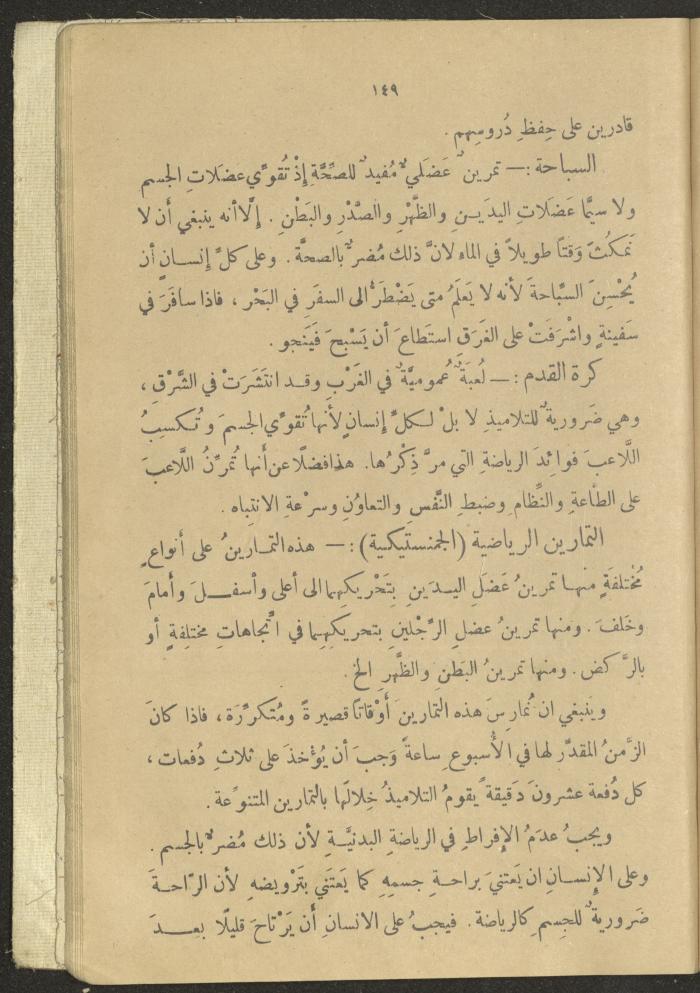 ١٤٩
قادرين على حِفظِ دُروسِهم .
السباحة : — تمرينٌ عَضَليٌّ مُفيدٌ للصِّحَّةِ إِذْ تُقوِّي عضَلاتِ الجسم
ولا سيَّما عَضَلاتِ اليدَين والظَّهْرِ والصَّدْرِ والبَطْنِ . إِلّا أنه ينبغي أَن لا
نَمكُثَ وَقتاً طويلاً في الماء لانَّ ذلك مُضرٌّ بالصحَّة . وعلى كلِّ إِنسانٍ أن
يُحْسِنَ السِّباحةَ لأنه لا يَعلَمُ متى يَضْطَرُّ الى السفَرِ في البَحْر ، فاذا سافَرَ في
سَفينةٍ واشْرَفَتْ على الغَرَق استَطاعَ أن يَسْبحَ فَيَنجو .
كرة القدم : — لُعبَةٌ عُموميَّةٌ في الغَرْبِ وقد انتَشَرَتْ في الشَّرْقِ ،
وهي ضَروريةٌ للتلاميذِ لا بلْ لكلِّ إِنسانٍ لأَنها تُقوِّي الجسمَ وتُكسِبُ
اللَّاعبَ فوائدَ الرياضةِ التي مرَّ ذِكْرُها. هذا فضلًا عن أَنها تُمرِّنُ اللَّاعبَ
على الطاعةِ والنِّظامِ وضبطِ النَّفسِ والتعاوُنِ وسرْعةِ الانتِباه .
التمارين الرياضية (الجمنستيكية) : — هذه التمارينُ على أَنواعٍ
مُختلفَةٍ منها تمرينُ عَضَلِ اليدَينِ بتَحْريكِهما الى أعلى وأسفلَ وأمامَ
وخَلفَ . ومنها تمرينُ عضلِ الرِّجْلينِ بتحريكِهِما في اتِّجاهاتٍ مختلِفةٍ أو
بالرَّكض . ومنها تمرينُ البَطنِ والظَّهرِ الخ .
وينبغي ان نُمارِسَ هذه التمارينَ أَوْقاتاً قصيرةً ومُتكرِّرَة ، فاذا كانَ
الزَّمنُ المقدَّر لها في الأُسبوعِ ساعةً وَجبَ أن يُؤْخذَ على ثلاثِ دُفعات ،
كل دُفعة عشرونَ دَقيقةً يَقومُ التلاميذُ خِلالَها بالتمارين المتنوِّعة .
ويجبُ عدَمُ الإِفراطِ في الرياضةِ البدنيَّةِ لأَن ذلك مُضرٌّ بالجسم .
وعلى الإِنسانِ ان يَعتنيَ براحةِ جسمِهِ كما يَعتَني بتَرْويضه لأَن الرّاحةَ
ضَروريةٌ للجِسمِ كالرياضة . فيجبُ على الانسانِ أَن يَرْتاحَ قليلًا بعدَ